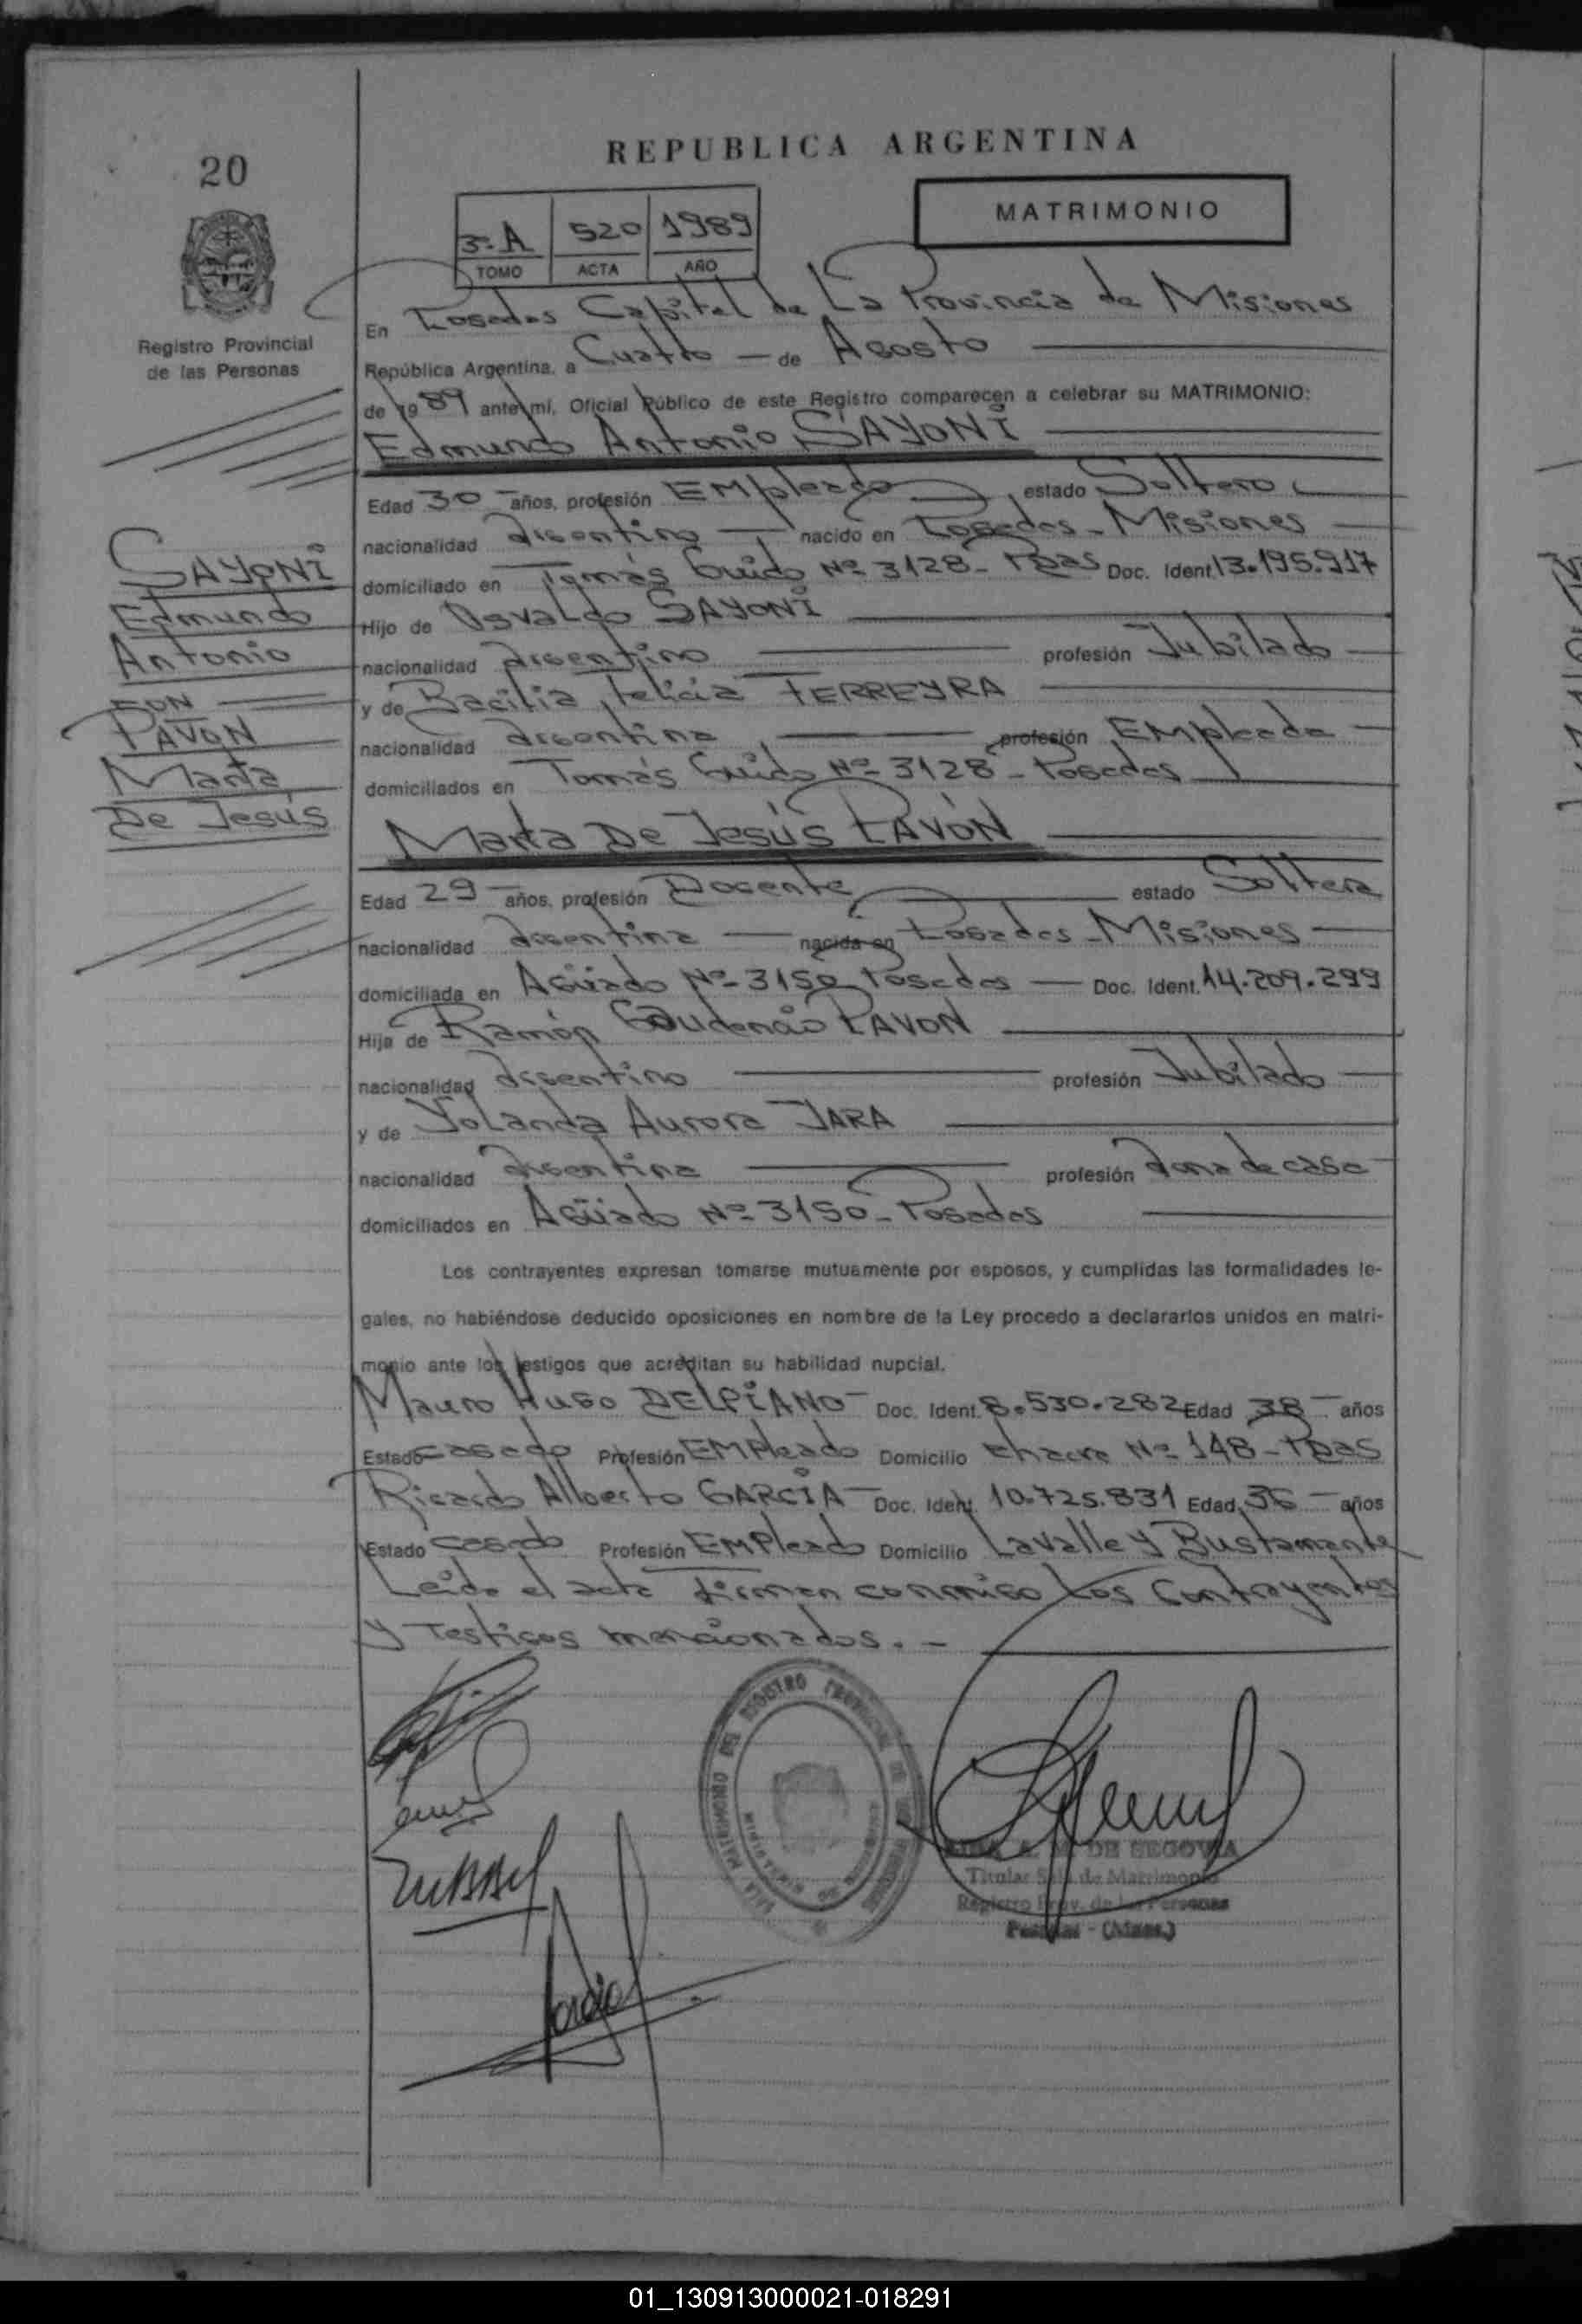 REPUBLICA ARGENTINA
20
MATRIMONIO
3º A 520 1989
TOMO ACTA AÑO
Registro Provincial
de las Personas
En Posadas Capital de La Provincia de Misiones
República Argentina, a Cuatro — de Agosto
de 1989 ante mí, Oficial Público de este Registro comparecen a celebrar su MATRIMONIO:
Edmundo Antonio SAYONI
Edad 30 años, profesión Empleado estado Soltero
nacionalidad argentino nacido en Posadas - Misiones
domiciliado en Tomás Guido Nº 3128 - Pdas Doc. Ident. 13.195.917
Hijo de Osvaldo SAYONI
nacionalidad argentino profesión Jubilado
y de Basilia Felicia FERREYRA
nacionalidad argentina profesión Empleada
domiciliados en Tomás Guido Nº 3128 - Posadas
SAYONI
Edmundo
Antonio
CON
PAVON
Marta
De Jesús
Marta De Jesús PAVÓN
Edad 29 años, profesión Docente estado Soltera
nacionalidad argentina nacida en Posadas - Misiones
domiciliada en Agüado Nº 3150 Posadas Doc. Ident. 14.209.299
Hija de Ramón Gaudencio PAVON
nacionalidad argentino profesión Jubilado
y de Yolanda Aurora JARA
nacionalidad argentina profesión ama de casa
domiciliados en Agüado Nº 3150 - Posadas
Los contrayentes expresan tomarse mutuamente por esposos, y cumplidas las formalidades le-
gales, no habiéndose deducido oposiciones en nombre de la Ley procedo a declararlos unidos en matri-
monio ante los testigos que acreditan su habilidad nupcial.
Mauro Hugo DELPIANO Doc. Ident. 8.530.282 Edad 38 años
Estado casado Profesión Empleado Domicilio chacra Nº 148 - Pdas
Ricardo Alberto GARCÍA Doc. Ident. 10.725.831 Edad 36 años
Estado casado Profesión Empleado Domicilio Lavalle y Bustamante
Leida el acta firman conmigo Los Contrayentes
y Testigos mencionados. -
DE SEGOVIA
Titular Sala de Matrimonio
Registro Prov. de las Personas
Posadas - (Mnes.)
01_130913000021-018291